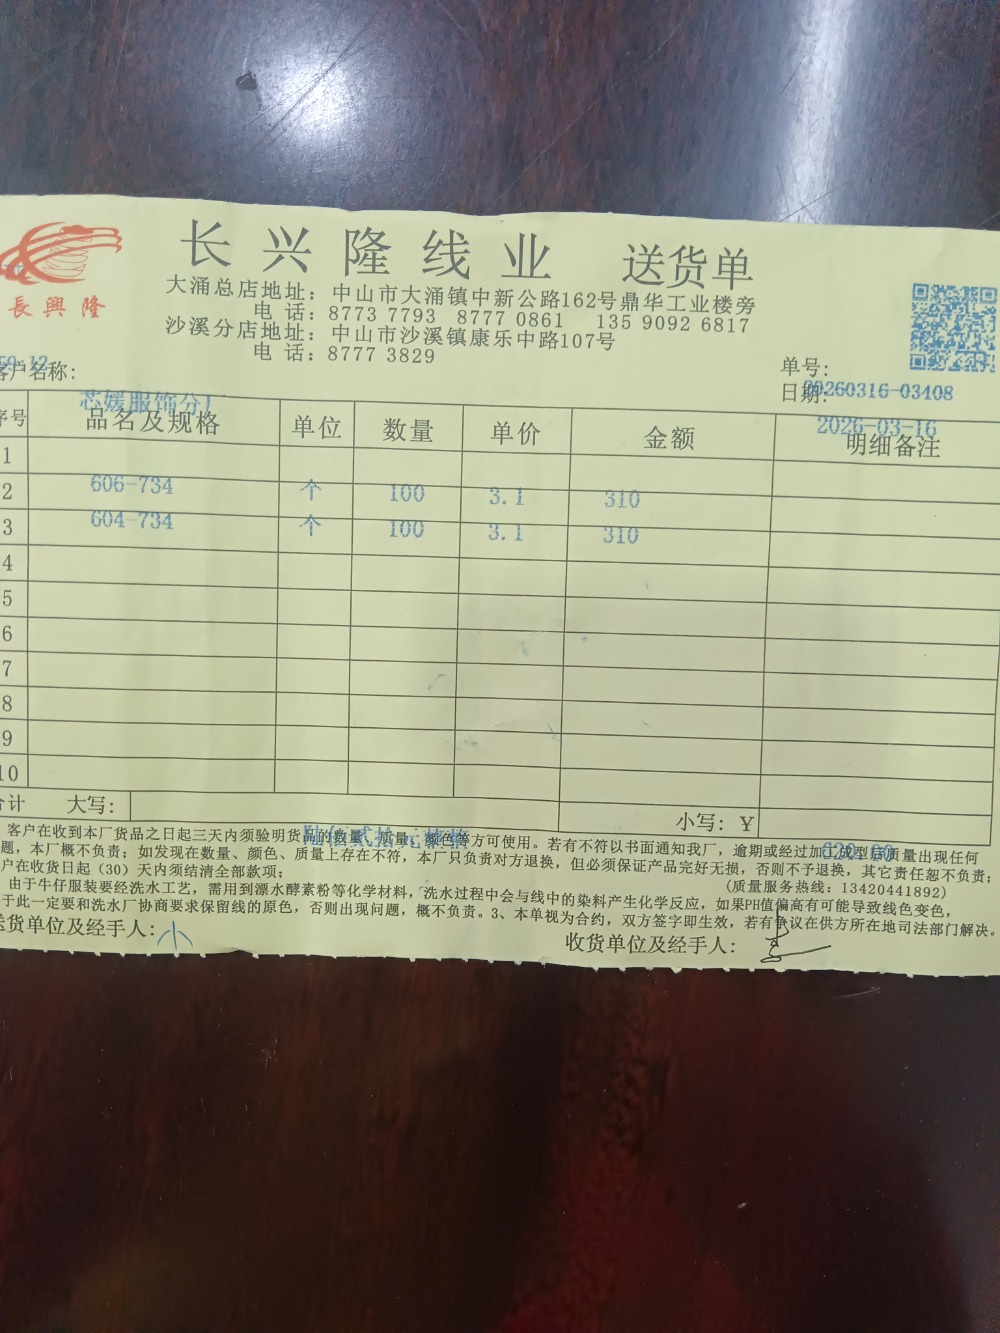 长兴隆线业 送货单
長興隆
大涌总店地址：中山市大涌镇中新公路162号鼎华工业楼旁
电 话：8773 7793 8777 0861 135 9092 6817
沙溪分店地址：中山市沙溪镇康乐中路107号
电 话：8777 3829
59-12
客户名称：
单号：
日期：
20260316-03408
芯媛服饰分厂
2026-03-16
序号 品名及规格 单位 数量 单价 金额 明细备注
1
2 606-734 个 100 3.1 310
3 604-734 个 100 3.1 310
4
5
6
7
8
9
10
合计 大写： 小写：¥
陆佰贰拾元整
620.00
客户在收到本厂货品之日起三天内须验明货品的数量、质量、颜色等方可使用。若有不符以书面通知我厂，逾期或经过加工成型后质量出现任何
题，本厂概不负责；如发现在数量、颜色、质量上存在不符，本厂只负责对方退换，但必须保证产品完好无损，否则不予退换，其它责任恕不负责；
户在收货日起（30）天内须结清全部款项；
（质量服务热线：13420441892）
由于牛仔服装要经洗水工艺，需用到漂水酵素粉等化学材料，洗水过程中会与线中的染料产生化学反应，如果PH值偏高有可能导致线色变色，
于此一定要和洗水厂协商要求保留线的原色，否则出现问题，概不负责。3、本单视为合约，双方签字即生效，若有争议在供方所在地司法部门解决。
送货单位及经手人：小
收货单位及经手人：